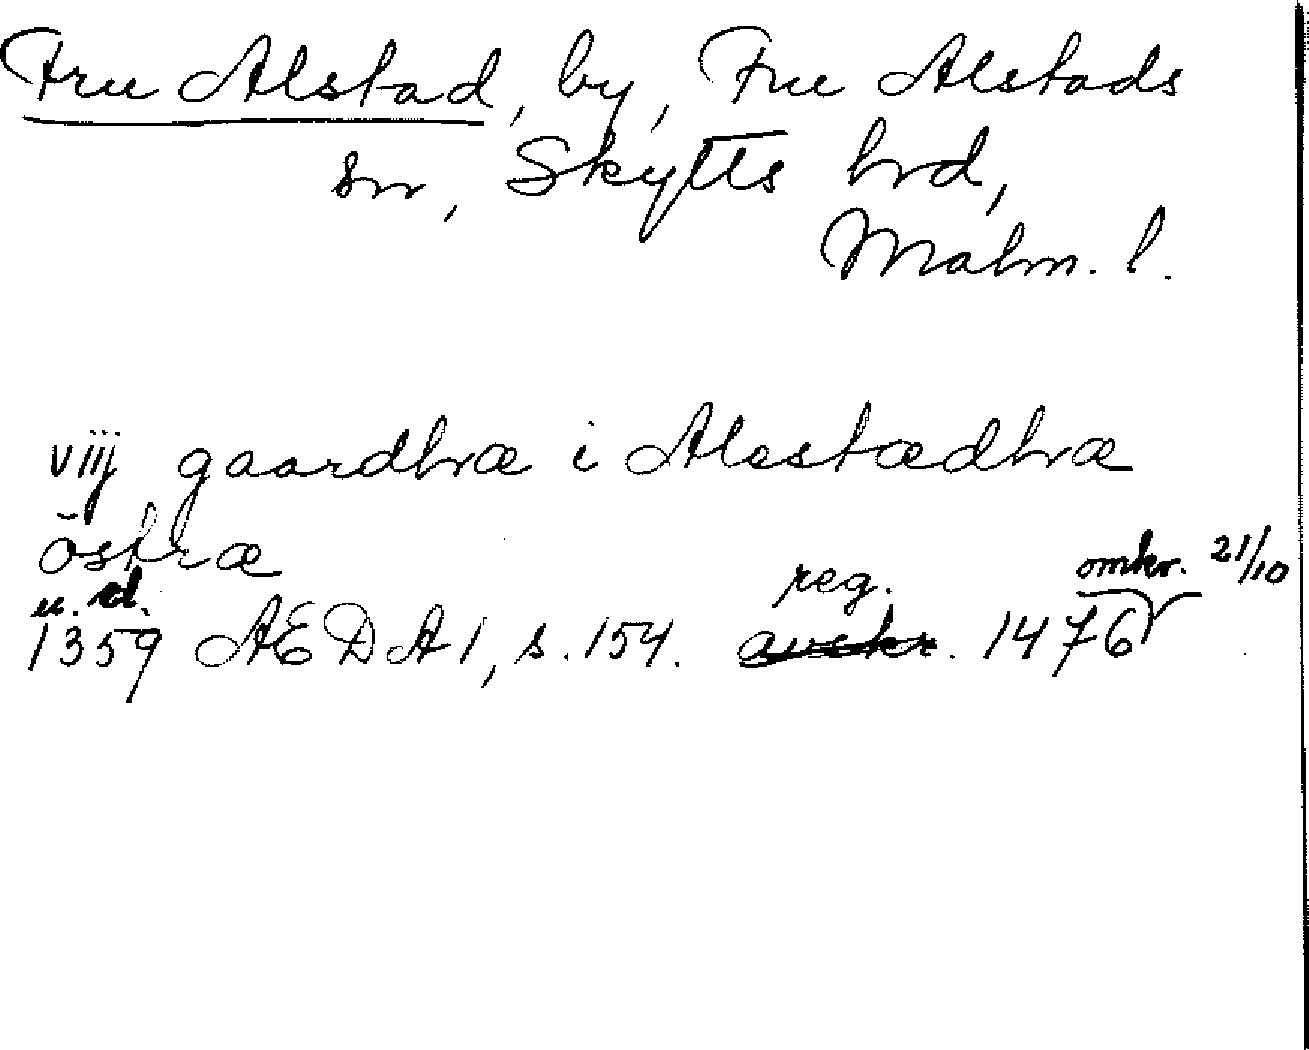 Fru Alstad, by, Fru Alstads
sn, Skytts hrd,
Malm. l.
viij gaardhræ i Alestædhræ
östræ
u. d. reg. omkr. 21/10
1359 AEDA 1, s. 154. avskr. 1476